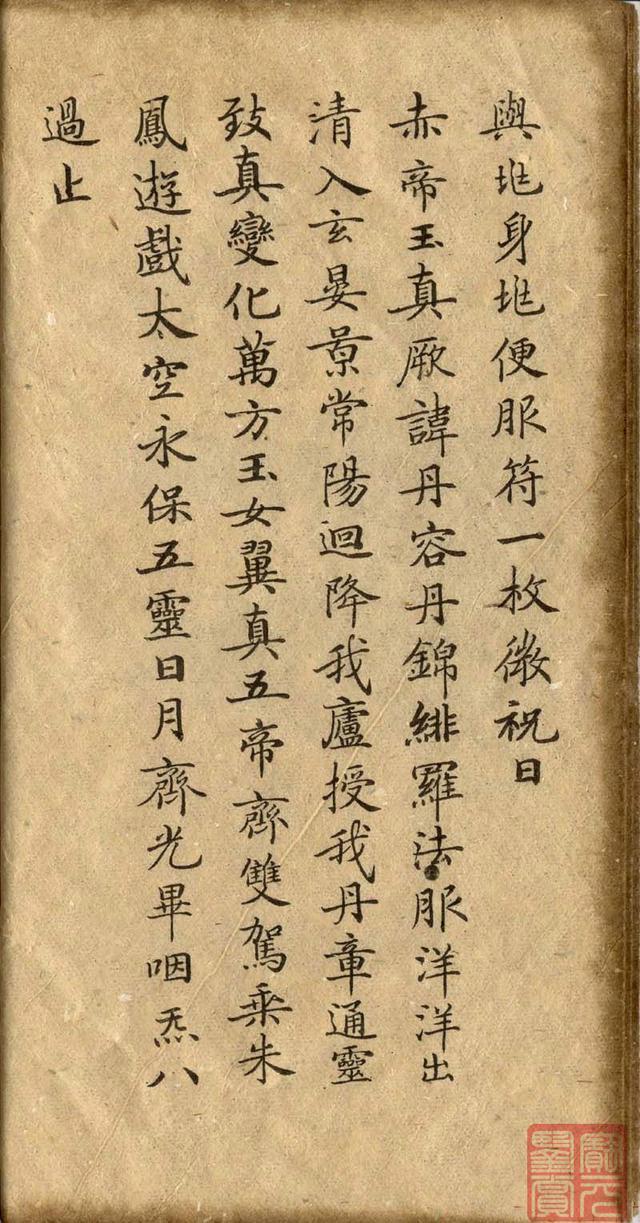 與地身地便服符一枚微祝曰
赤帝玉真厥諱丹容丹錦緋羅法服洋洋出
清入玄晏景常陽迴降我廬授我丹章通靈
致真變化萬方玉女翼真五帝齊雙駕乘朱
鳳遊戲太空永保五靈日月齊光畢咽炁八
過止